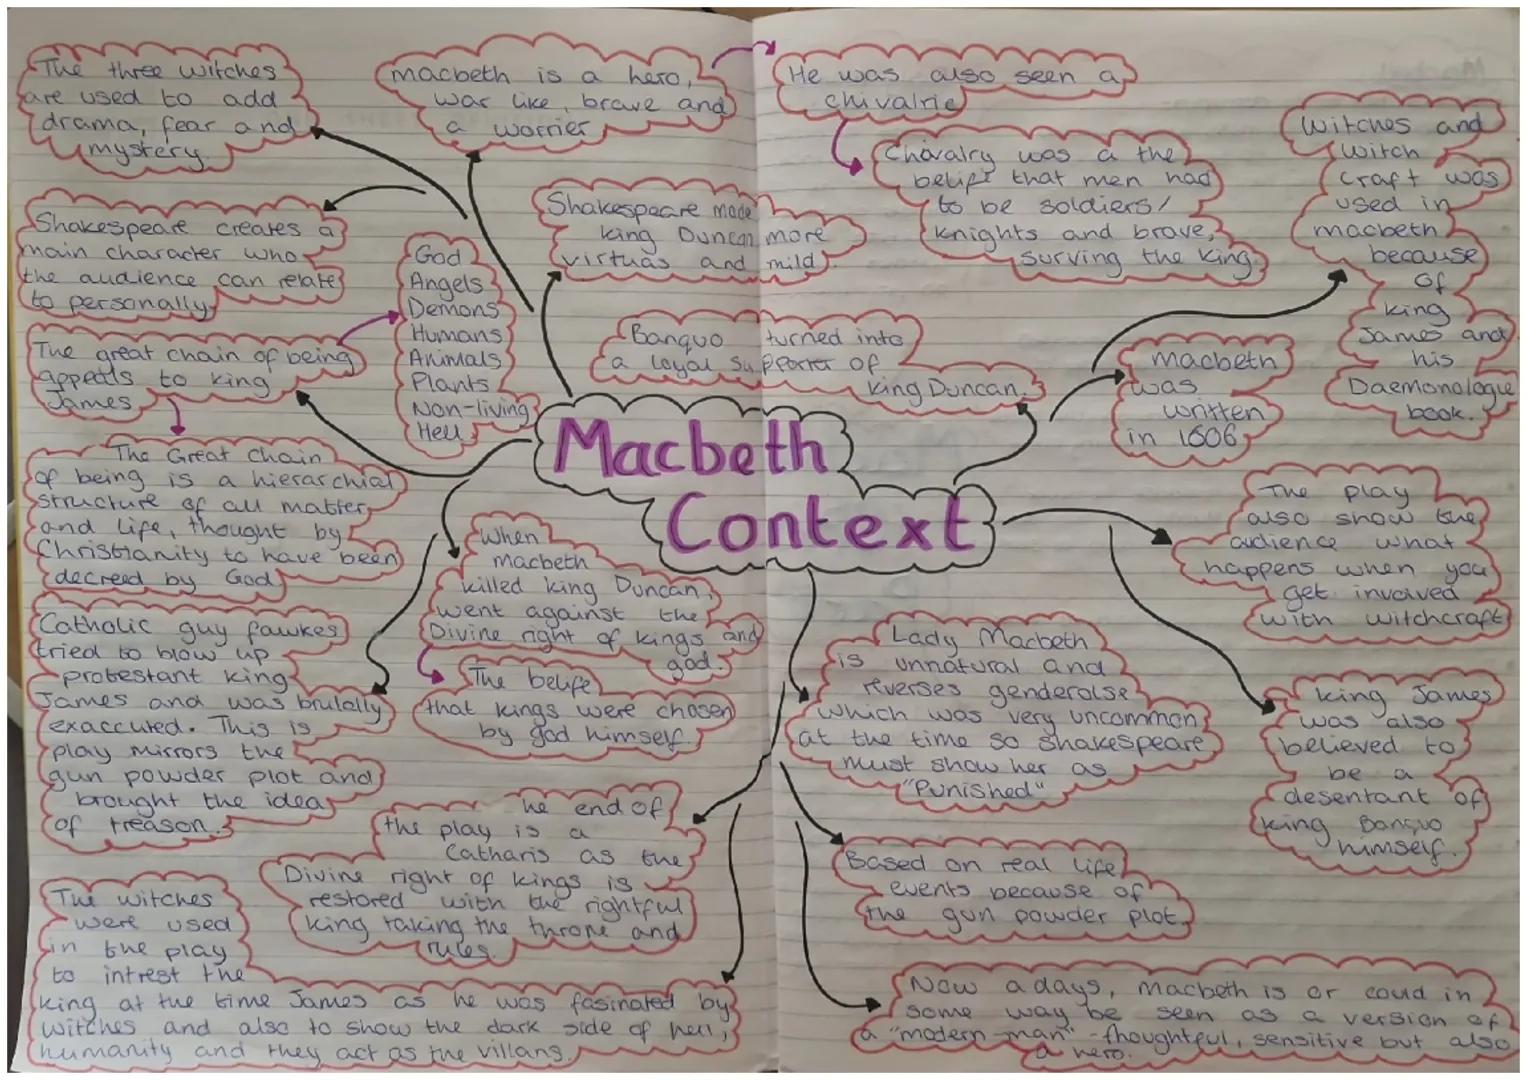 The three witches
are used to add
drama, fear and
mystery.
macbeth is a hero,
war like, brave and
a worrier
He was also seen a
chivalric
Chavalry was a the
belife that men had
to be soldiers/
knights and brave,
surving the king.
Witches and
witch
craft was
used in
macbeth
because
of
king
James and
his
Daemonologie
book.
Shakespeare creates a
main character who
the audience can relate
to personally
Shakespeare made
king Duncan more
virtuas and mild
God
Angels
Demons
Humans
Animals
Plants
Non-living
Hell
The great chain of being
appeals to king
James
Banquo turned into
a loyal supporter of
king Duncan.
macbeth
was
written
in 1606
Macbeth
Context
The Great Chain
of being is a hierarchial
structure of all matter
and life, thought by
Christianity to have been
decreed by God
When
macbeth
killed king Duncan,
went against the
Divine right of kings and
god.
The belife
that kings were chosen
by god himself.
The play
also show the
audience what
happens when you
get involved
with witchcraft
Catholic guy fawkes
tried to blow up
protestant king
James and was brutally
exaccuted. This is
play mirrors the
gun powder plot and
brought the idea
of treason.
Lady Macbeth
is unnatural and
reverses genderolse
which was very uncommon
at the time so shakespeare
must show her as
"Punished"
king James
was also
believed to
be a
desentant of
king Banquo
himself.
he end of
the play is a
Catharis as the
Divine right of kings is
restored with the rightful
king taking the throne and
rules.
Based on real life
events because of
the gun powder plot.
The witches
were used
in the play
to intrest the
king at the time James as he was fasinated by
witches and also to show the dark side of hell,
humanity and they act as the villans.
Now a days, macbeth is or could in
some way be seen as a version of
a "modern man" - thoughtful, sensitive but also
a hero.